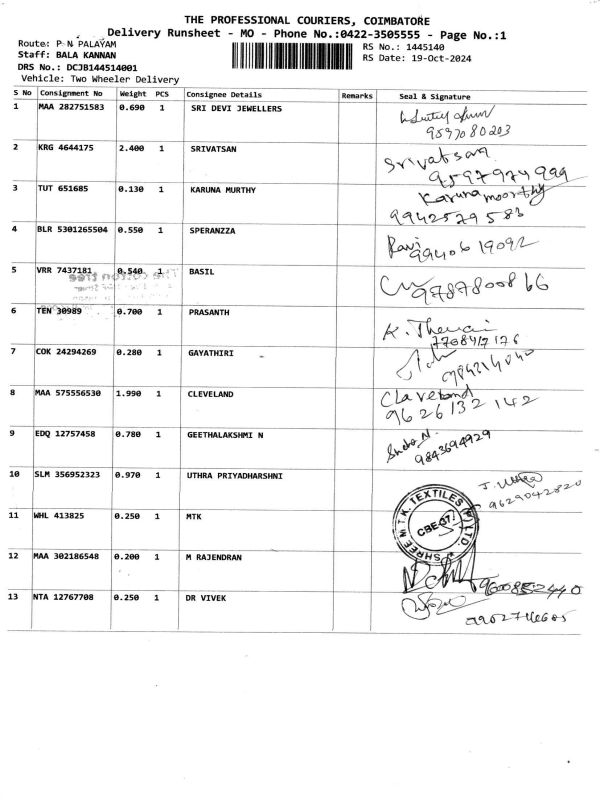 THE PROFESSIONAL COURIERS, COIMBATORE
Delivery Runsheet - MO - Phone No.:0422-3505555 - Page No.:1
Route: P N PALAYAM
RS No.: 1445140
Staff: BALA KANNAN
RS Date: 19-Oct-2024
DRS No.: DCJB144514001
Vehicle: Two Wheeler Delivery
S No Consignment No Weight PCS Consignee Details Remarks Seal & Signature
1 MAA 282751583 0.690 1 SRI DEVI JEWELLERS
2 KRG 4644175 2.400 1 SRIVATSAN Srivatsan
9597974999
3 TUT 651685 0.130 1 KARUNA MURTHY Karunamoorthy
9942529583
4 BLR 5301265504 0.550 1 SPERANZZA Ravi
9940619092
5 VRR 7437181 0.540 1 BASIL
9787800866
6 TEN 30989 0.700 1 PRASANTH
7 COK 24294269 0.280 1 GAYATHIRI
8 MAA 575556530 1.990 1 CLEVELAND Claveland
9626132142
9 EDQ 12757458 0.780 1 GEETHALAKSHMI N
9843694929
10 SLM 356952323 0.970 1 UTHRA PRIYADHARSHNI
9629042820
11 WHL 413825 0.250 1 MTK SHREE M.T.K. TEXTILES (P) LTD. CBE-37
12 MAA 302186548 0.200 1 M RAJENDRAN
13 NTA 12767708 0.250 1 DR VIVEK